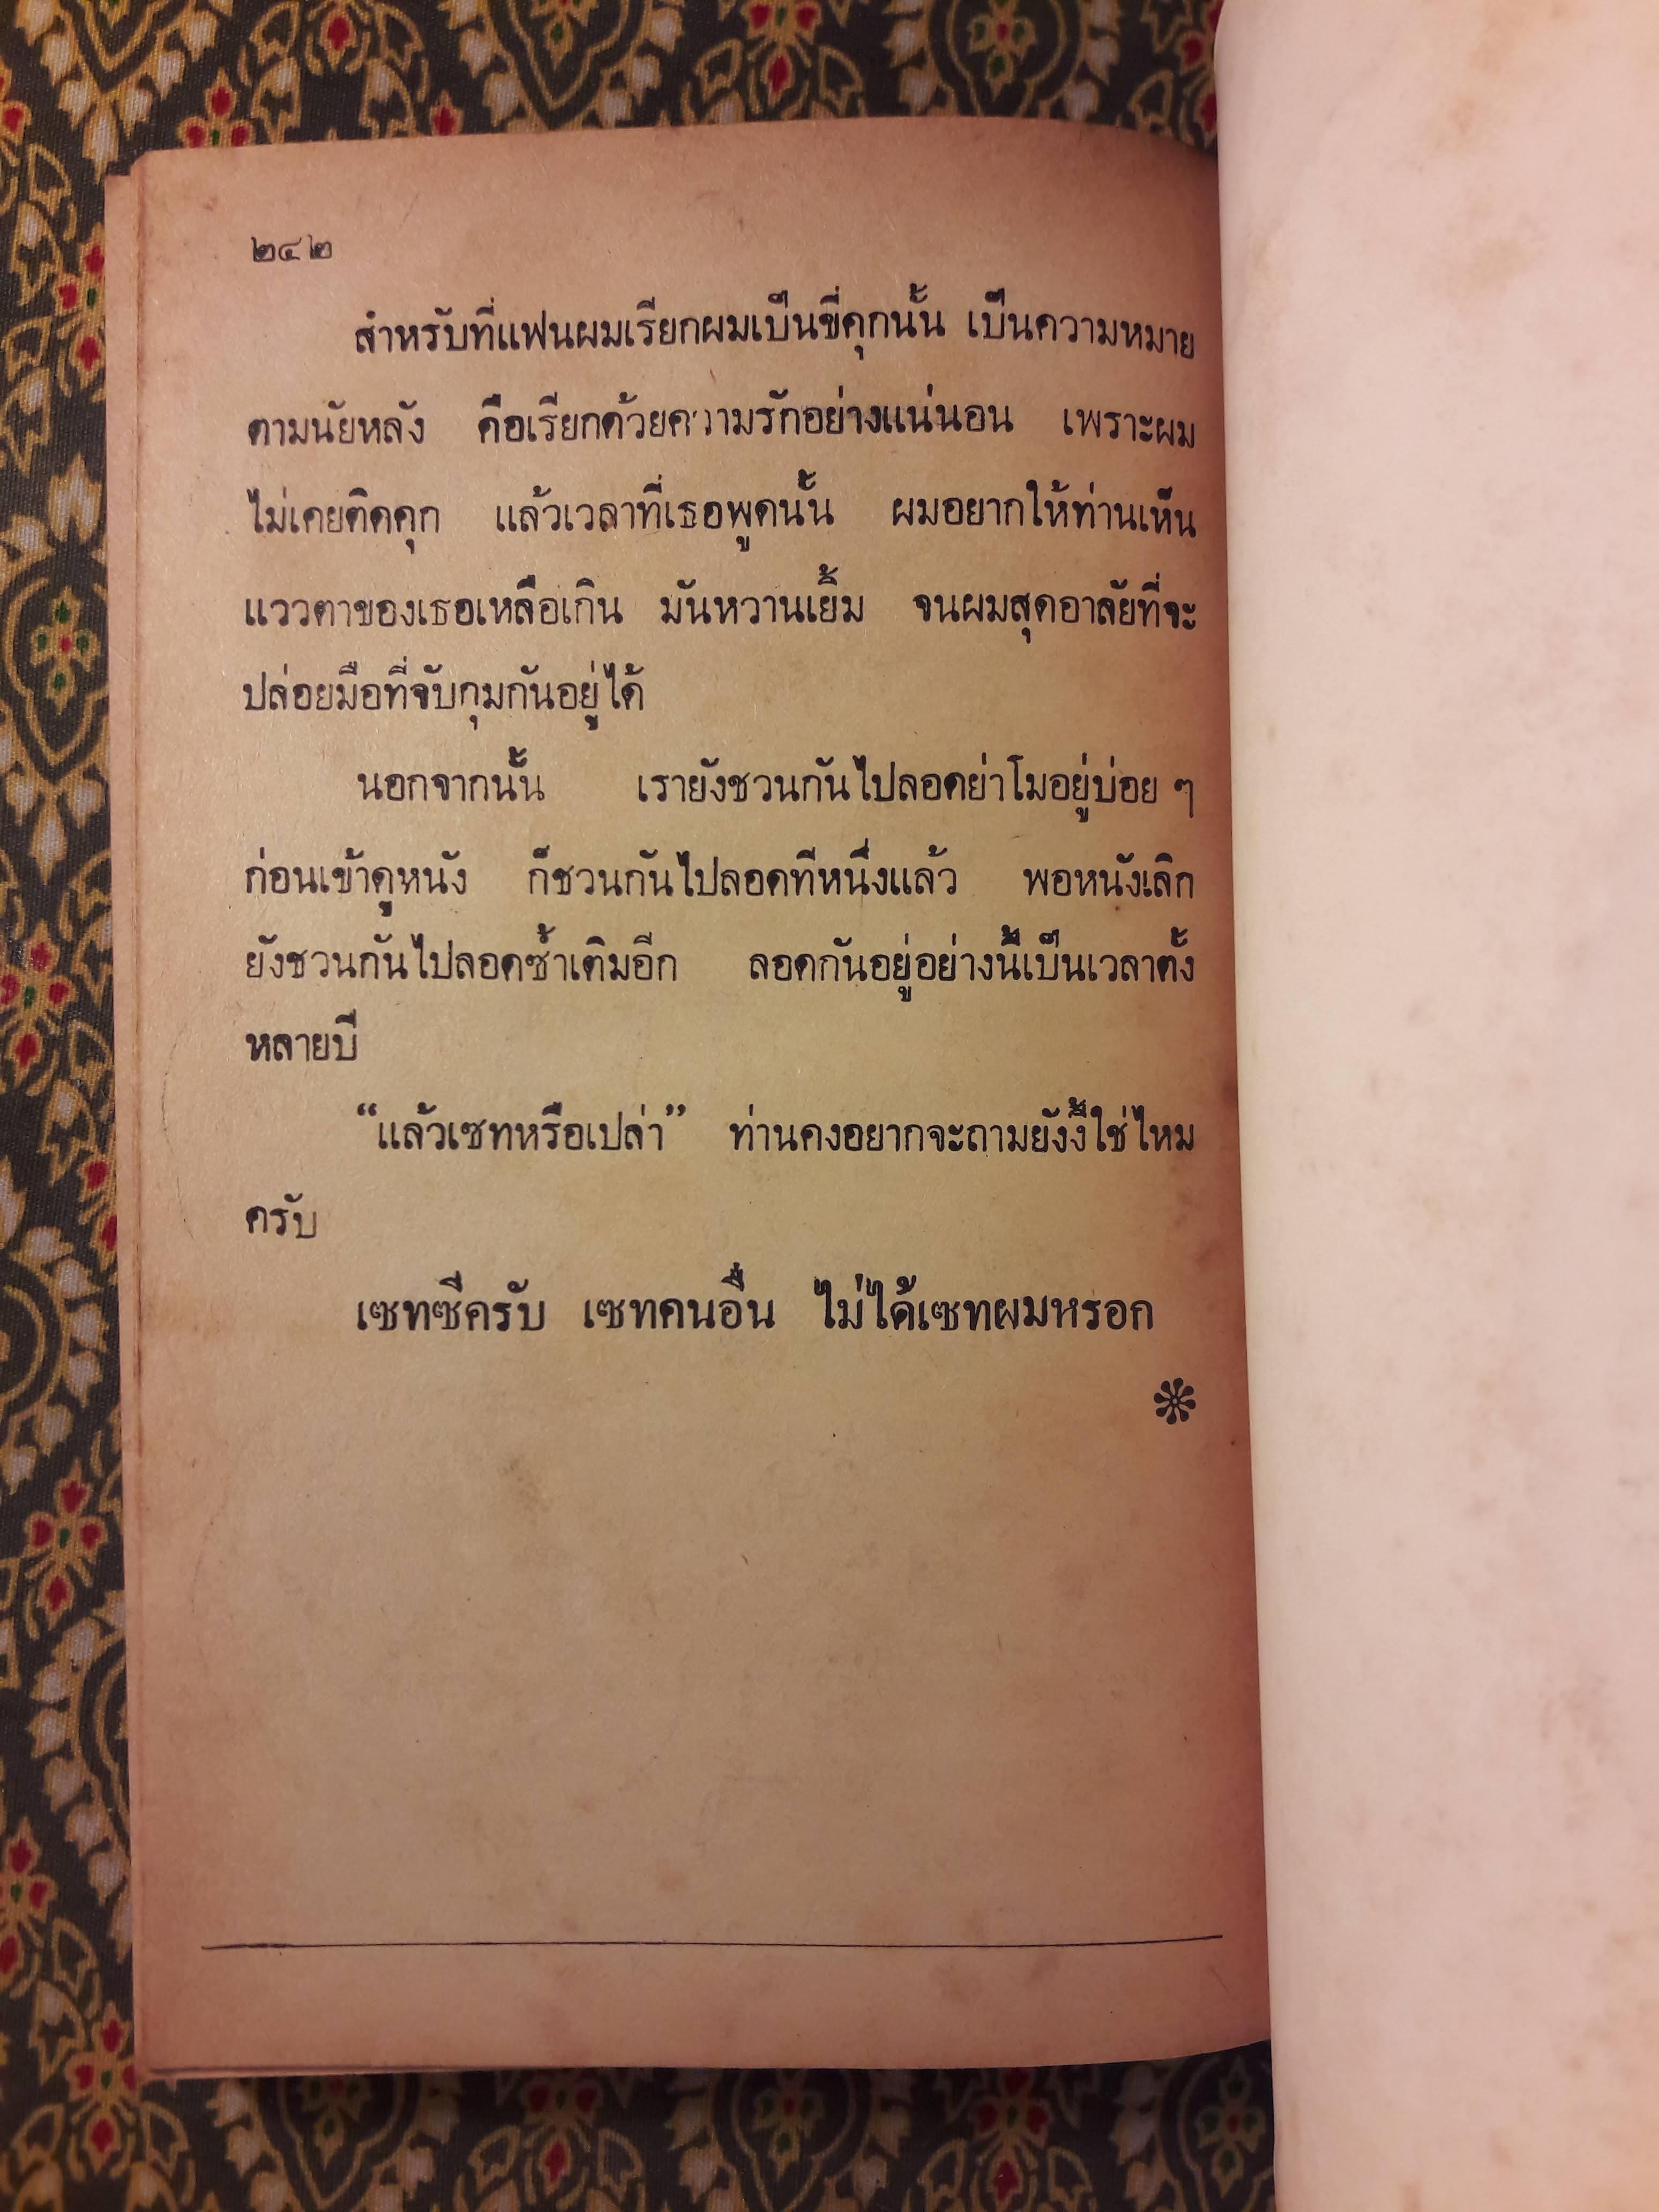 ๒๔๒
สำหรับที่แฟนผมเรียกผมเป็นขี่คุกนั้น เป็นความหมาย
ตามนัยหลัง คือเรียกด้วยความรักอย่างแน่นอน เพราะผม
ไม่เคยติดคุก แล้วเวลาที่เธอพูดนั้น ผมอยากให้ท่านเห็น
แววตาของเธอเหลือเกิน มันหวานเยิ้ม จนผมสุดอาลัยที่จะ
ปล่อยมือที่จับกุมกันอยู่ได้
นอกจากนั้น เรายังชวนกันไปลอดย่าโมอยู่บ่อย ๆ
ก่อนเข้าดูหนัง ก็ชวนกันไปลอดทีหนึ่งแล้ว พอหนังเลิก
ยังชวนกันไปลอดซ้ำเติมอีก ลอดกันอยู่อย่างนี้เป็นเวลาตั้ง
หลายปี
“แล้วเซทหรือเปล่า” ท่านคงอยากจะถามยังงี้ใช่ไหม
ครับ
เซทซีครับ เซทคนอื่น ไม่ได้เซทผมหรอก